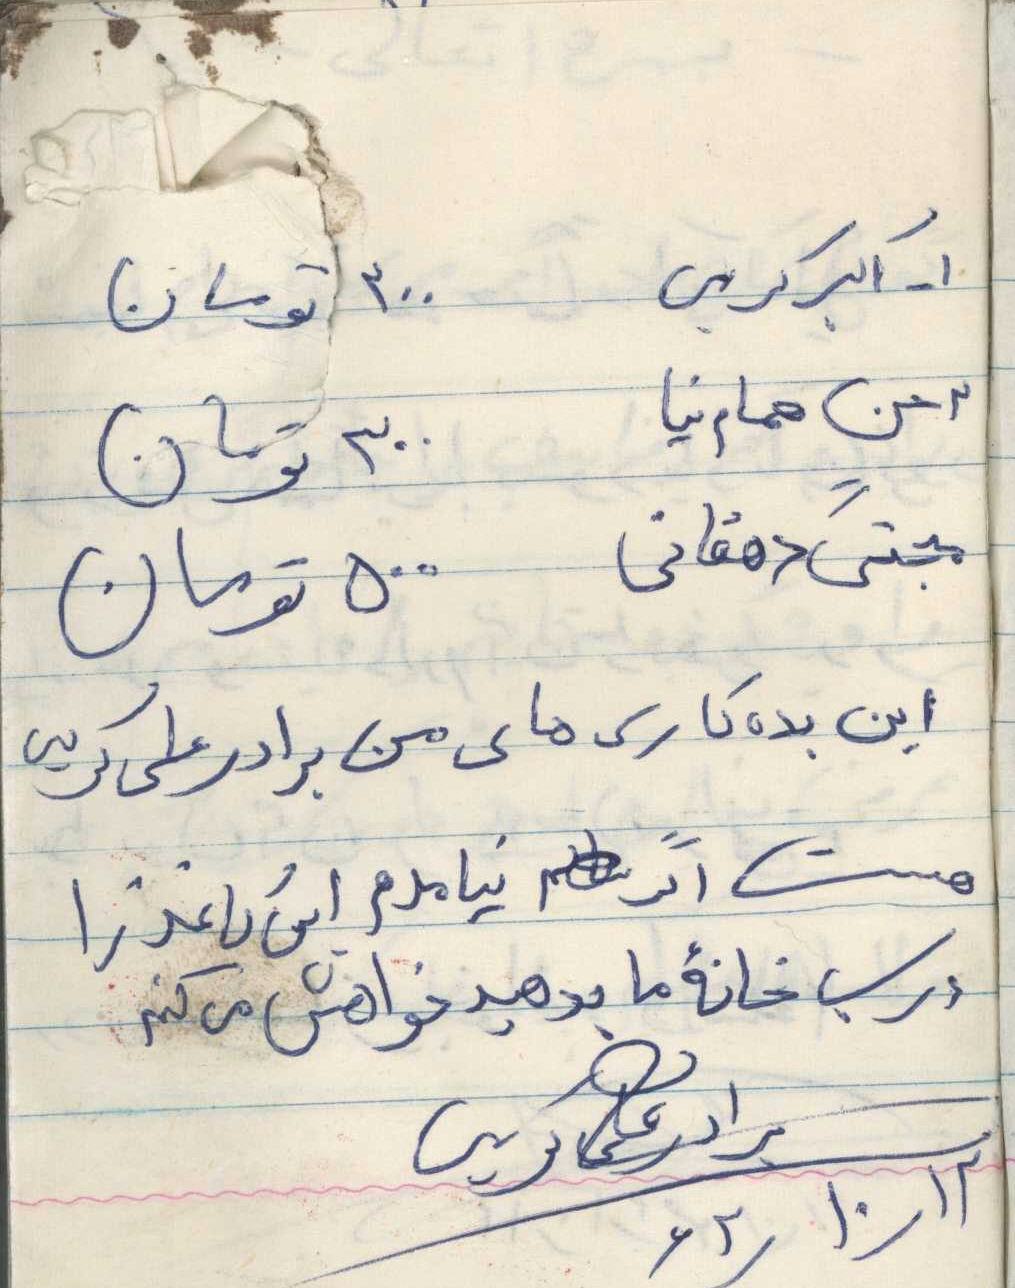 ۱- اکبر کریمی ۳۰۰ تومان
۲- حسن همام نیا ۳۰۰ تومان
مجتبی دهقانی ۵۰۰ تومان
این بده کاری های من برادر علی کریمی
هست اگر نیامدم این کاغذ را
درب خانهٔ ما بدهید خواهش می کنم
برادر علی کریمی
۱۲/۱۰/۶۲